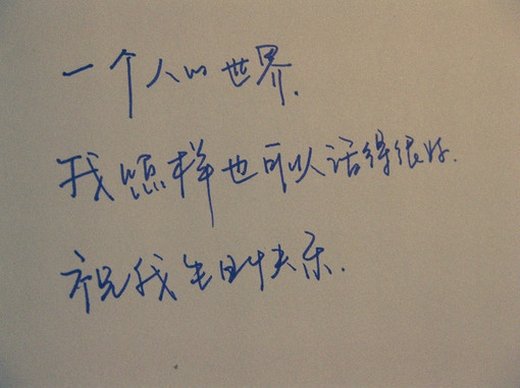 一个人的世界.
我照样也可以活得很好.
祝我生日快乐.